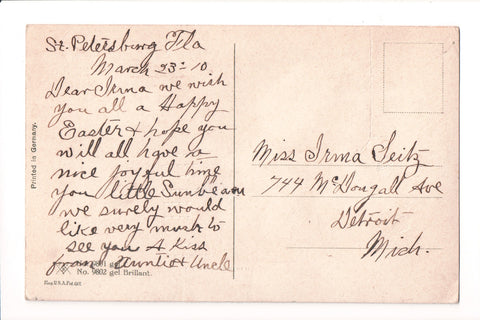 St. Petersburg Fla
March 23-10
Dear Irma we wish
you all a Happy
Easter & hope you
will all have a
nice joyful time
you little Sunbeam
we surely would
like very much to
see you A Kiss
from Auntie & Uncle
Miss Irma Seitz
744 McDougall Ave
Detroit
Mich.
Printed in Germany.
No. 9802 gel Brillant.